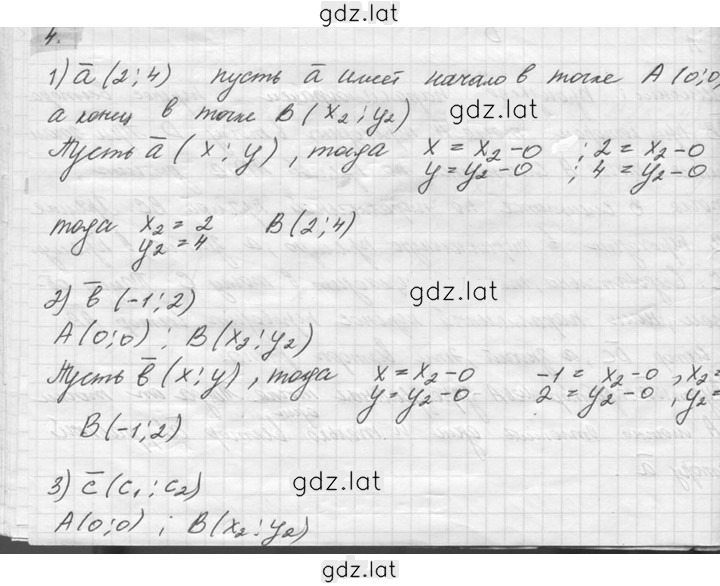 gdz.lat
4.
1) a̅ (2; 4) пусть a̅ имеет начало в точке A (0; 0,
а конец в точке B (x₂; y₂)
gdz.lat
Пусть a̅ (x; y), тогда x = x₂ - 0 ; 2 = x₂ - 0
y = y₂ - 0 ; 4 = y₂ - 0
тогда x₂ = 2 B(2; 4)
y₂ = 4
2) b̅ (-1; 2)
gdz.lat
A(0; 0) ; B(x₂; y₂)
Пусть b̅ (x; y), тогда x = x₂ - 0 -1 = x₂ - 0 , x₂ =
y = y₂ - 0 2 = y₂ - 0 , y₂ =
B(-1; 2)
3) c̅ (c₁; c₂)
gdz.lat
A(0; 0) ; B(x₂; y₂)
gdz.lat